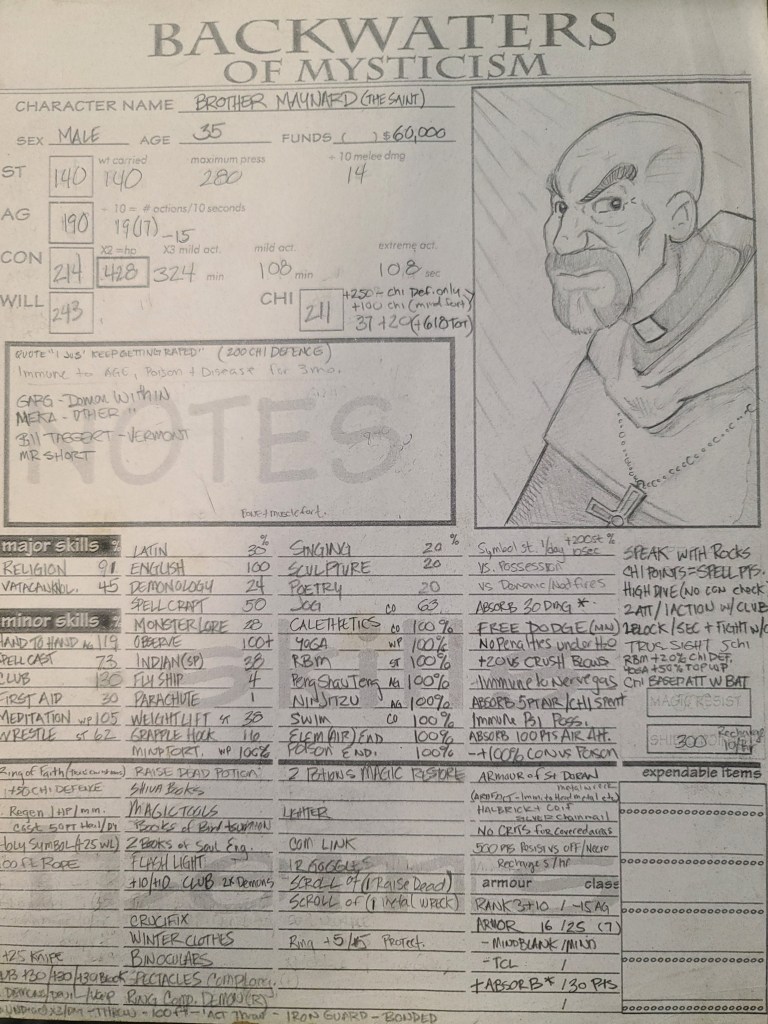 BACKWATERS
OF MYSTICISM
CHARACTER NAME BROTHER MAYNARD (THE SAINT)
SEX MALE AGE 35 FUNDS ( ) $60,000
ST 140 wt carried 140 maximum press 280 ÷ 10 melee dmg 14
AG 190 ÷ 10 = # actions/10 seconds 19(17) -15
CON 214 X2 =hp 428 X3 mild act. 324 min mild act. 108 min extreme act. 10.8 sec
WILL 243 CHI 211 +250 - chi Def. only
+100 chi (mind fort)
37 +20 (+618 TOT)
QUOTE "I JUS' KEEP GETTING RAPED" (200 CHI DEFENCE)
Immune to AGE, Poison + Disease for 3mo.
GARG - Demon WITHIN
MEKA - OTHER "
BILL TAGGERT - VERMONT
MR SHORT
NOTES
major skills %
RELIGION 91
VATACAN KNOL. 45
minor skills %
HAND TO HAND AG 119
SPELL CAST 73
CLUB 130
FIRST AID 30
MEDITATION WP 105
WRESTLE ST 62
%
LATIN 30
ENGLISH 100
DEMONOLOGY 24
SPELLCRAFT 50
MONSTER LORE 28
OBSERVE 100+
INDIAN (SP) 38
FLY SHIP 4
PARACHUTE 1
WEIGHT LIFT ST 38
GRAPPLE HOOK 16
MIND FORT. WP 100%
%
SINGING 20
SCULPTURE 20
POETRY 20
JOG CO 63
CALETHETICS CO 100%
YOGA WP 100%
RBM ST 100%
Peng Shau Teng AG 100%
NINJITZU AG 100%
SWIM CO 100%
ELEM (AIR) END 100%
POISON END. 100%
Symbol st. 1/day +20 St % 10sec
vs. Possession
vs Demonic/Nod fires
ABSORB 30 DMG *
FREE DODGE (MN)
No Penalties under H2O
+20 VS CRUSH BLOWS
Immune to Nerve gas
ABSORB 5PT AIR/CHI spent
Immune B1 Poss.
ABSORB 100 PTS AIR Att.
+100% CON VS POISON
SPEAK WITH ROCKS
CHI POINTS = SPELL PTS.
HIGH DIVE (No con check)
2ATT/1ACTION W/CLUB
2BLOCK/SEC + FIGHT W/C
TRUE SIGHT 5chi
RBM +20% CHI DEF.
Yoga +50% TOP UP
CHI BASED ATT W BAT
MAGIC RESIST
300 Recharge 10/hr
Ring of Faith
+50 CHI DEFENCE
Regen 1HP/min.
Cast 50PT Heal/DY
Holy Symbol (+25 WL)
00 Ft ROPE
+25 Knife
RAISE DEAD POTION
SHIVA Books
MAGIC TOOLS
2 Books of Soul Eng.
FLASH LIGHT
+10/+10 CLUB 2X Demons
CRUCIFIX
WINTER CLOTHES
BINOCULARS
2 POTIONS MAGIC RESTORE
LIGHTER
COM LINK
IR GOGGLES
SCROLL OF (1 Raise Dead)
SCROLL OF (1 metal wreck)
Ring +5/45 Protect.
ARMOUR OF St DORAN
HALBRICK + Coif
SILVER chainmail
NO CRITS for covered areas
500 PTS Positive off/Necro
Recharge 5/hr
armour class
RANK 3+10 / -15 AG
ARMOR 16/25 (7)
- MINDBLANK/MIND
- TCL /
+ABSORB* / 30 PTS
expendable items
- THROW - 100ft - 1 Act Throw - IRON GUARD - BONDED